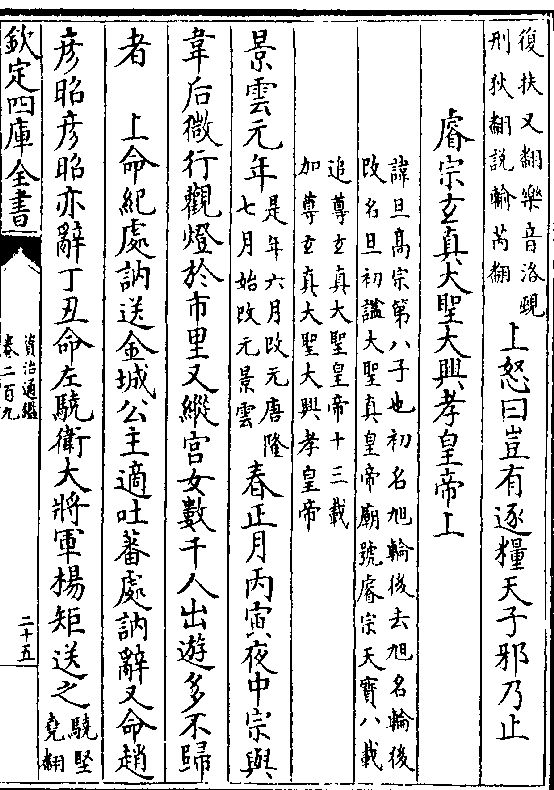 復扶又翻樂音洛覬
刑狄翻説輸芮翻
上怒曰豈有逐糧天子邪乃止
睿宗玄真大聖大興孝皇帝上
諱旦髙宗第八子也初名旭輪後去旭名輪後
改名旦初諡大聖真皇帝廟號睿宗天寶八載
追尊玄真大聖皇帝十三載
加尊玄真大聖大興孝皇帝
景雲元年
是年六月改元唐隆
七月始改元景雲
春正月丙寅夜中宗與
韋后微行觀燈於市里又縱宫女數千人出遊多不歸
者 上命紀處訥送金城公主適吐蕃處訥辭又命趙
彦昭彦昭亦辭丁丑命左驍衛大將軍楊矩送之
驍堅
堯翻
欽定四庫全書
資治通鑑
卷二百九
二十五